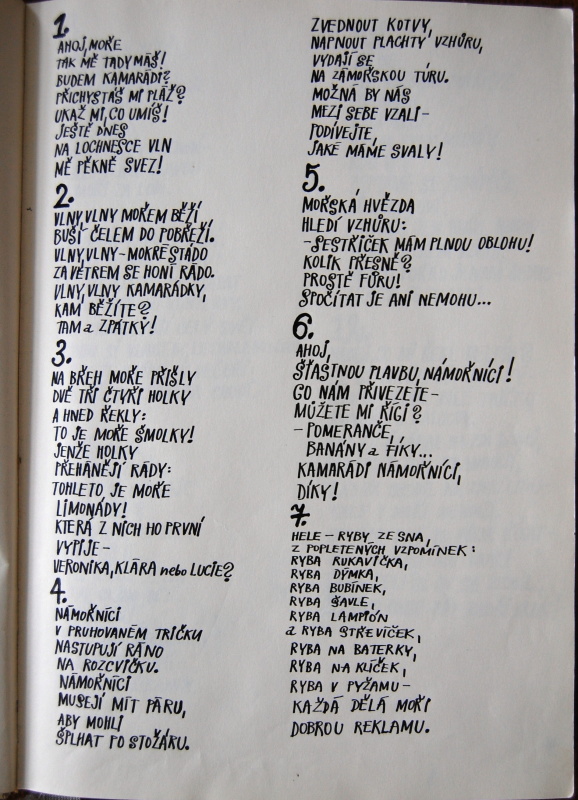 1.
AHOJ, MOŘE
TAK MĚ TADY MÁŠ!
BUDEM KAMARÁDI?
PŘICHYSTÁŠ MI PLÁŽ?
UKAŽ MI, CO UMÍŠ!
JEŠTĚ DNES
NA LOCHNESCE VLN
MĚ PĚKNĚ SVEZ!
2.
VLNY, VLNY MOŘEM BĚŽÍ,
BUŠÍ ČELEM DO POBŘEŽÍ.
VLNY, VLNY – MOKRÉ STÁDO
ZA VĚTREM SE HONÍ RÁDO.
VLNY, VLNY KAMARÁDKY,
KAM BĚŽÍTE?
TAM a ZPÁTKY!
3.
NA BŘEH MOŘE PŘIŠLY
DVĚ TŘI ČTYŘI HOLKY
A HNED ŘEKLY:
TO JE MOŘE ŠMOLKY!
JENŽE HOLKY
PŘEHÁNĚJÍ RÁDY:
TOHLETO JE MOŘE
LIMONÁDY!
KTERÁ Z NICH HO PRVNÍ
VYPIJE –
VERONIKA, KLÁRA nebo LUCIE?
4.
NÁMOŘNÍCI
V PRUHOVANÉM TRIČKU
NASTUPUJÍ RÁNO
NA ROZCVIČKU.
NÁMOŘNÍCI
MUSEJÍ MÍT PÁRU,
ABY MOHLI
ŠPLHAT PO STOŽÁRU.
ZVEDNOUT KOTVY,
NAPNOUT PLACHTY VZHŮRU,
VYDAJÍ SE
NA ZÁMOŘSKOU TÚRU.
MOŽNÁ BY NÁS
MEZI SEBE VZALI –
PODÍVEJTE,
JAKÉ MÁME SVALY!
5.
MOŘSKÁ HVĚZDA
HLEDÍ VZHŮRU:
– SESTŘIČEK MÁM PLNOU OBLOHU!
KOLIK PŘESNĚ?
PROSTĚ FŮRU!
SPOČÍTAT JE ANI NEMOHU...
6.
AHOJ,
ŠŤASTNOU PLAVBU, NÁMOŘNÍCI!
CO NÁM PŘIVEZETE –
MŮŽETE MI ŘÍCI?
– POMERANČE,
BANÁNY a FÍKY...
KAMARÁDI NÁMOŘNÍCI,
DÍKY!
7.
HELE – RYBY ZE SNA,
Z POPLETENÝCH VZPOMÍNEK:
RYBA RUKAVIČKA,
RYBA DÝMKA,
RYBA BUBÍNEK,
RYBA ŠAVLE,
RYBA LAMPIÓN
a RYBA STŘEVÍČEK,
RYBA NA BATERKY,
RYBA NA KLÍČEK,
RYBA V PYŽAMU –
KAŽDÁ DĚLÁ MOŘI
DOBROU REKLAMU.